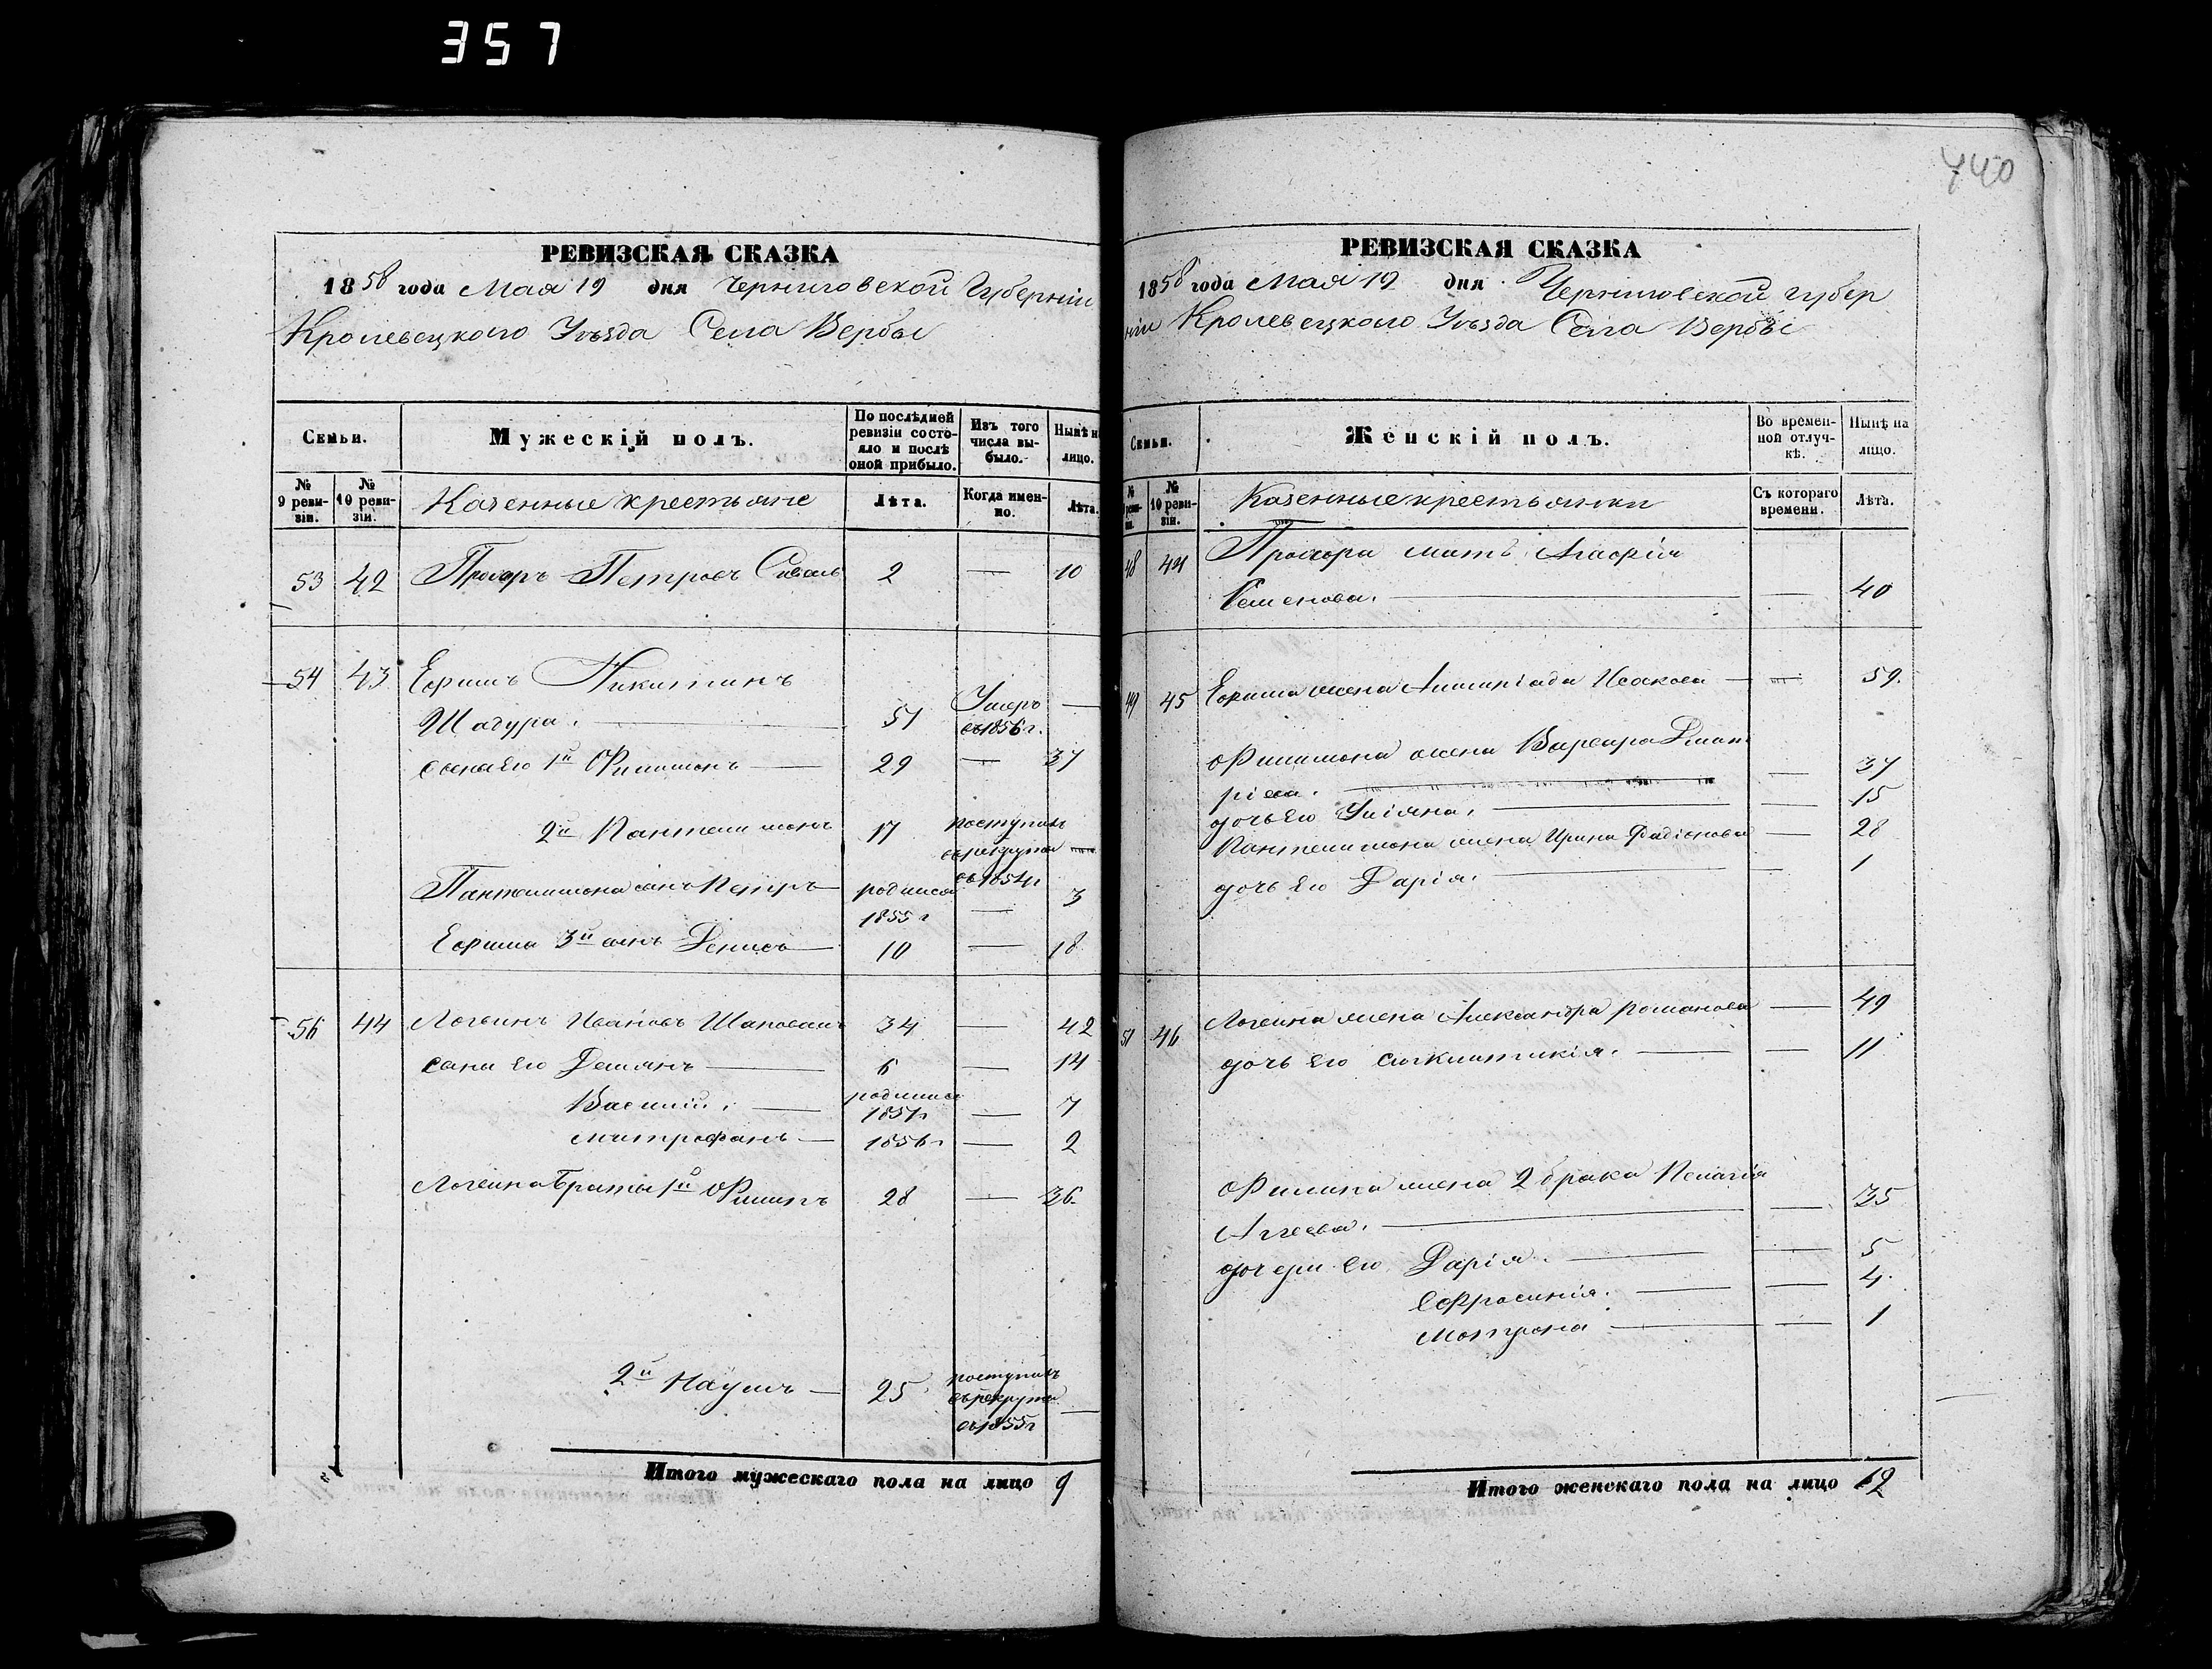 357
440
РЕВИЗСКАЯ СКАЗКА
1858 года Мая 19 дня Черниговской Губерніи
Кролевецкого Уѣзда Села Вербы
Семьи.
Мужескій полъ.
По послѣдней ревизіи состояло и послѣ оной прибыло.
Изъ того числа выбыло.
Нынѣ на лицо.
№ 9 ревизіи.
№ 10 ревизіи.
Казенные крестьяне
Лѣта.
Когда именно.
Лѣта.
53 42 Прохоръ Петровъ 2 — 10
54 43 Ефимъ Никитинъ
Шадура. 51 Умеръ въ 1856 г. —
сыновья его 1й Филимонъ 29 — 37
2й Пантелимонъ 17 поступилъ въ рекруты въ 1854 г —
Пантелимона сынъ Петръ родился 1855 г — 3
Ефима 3й сынъ Денисъ 10 — 18
56 44 Логвинъ Ивановъ Шаповалъ 34 — 42
сыны его Демянъ 6 — 14
Василий. родился 1851 г — 7
Митрофанъ 1856 г — 2
Логвина Браты 1й Филипъ 28 — 36
2й Наумъ 25 поступилъ въ рекруты въ 1855 г —
Итого мужескаго пола на лицо 9
РЕВИЗСКАЯ СКАЗКА
1858 года Мая 19 дня Черниговской губер
ніи Кролевецкого Уѣзда Села Вербы
Семьи.
Женскій полъ.
Во временной отлучкѣ.
Нынѣ на лицо.
№ ревизіи.
№ 10 ревизіи.
Казенные крестьянки
Съ котораго времени.
Лѣта.
48 44 Прохора мать Агафія
Семенова. — 40
49 45 Ефима жена Исакова — 59.
Филимона жена Варвара Дмит
ріева. — 37
дочь его Уліяна. — 15
Пантелимона жена Ирина Фадіонова — 28
дочь его Дарія. — 1
51 46 Логвина жена Александра Романова — 49
дочь его — 11
Филипа жена 2 брака Пелагія
Агеева. — 35
дочери его Дарія. — 5
Ефросинія. — 4.
Мотрона — 1
Итого женскаго пола на лицо 12